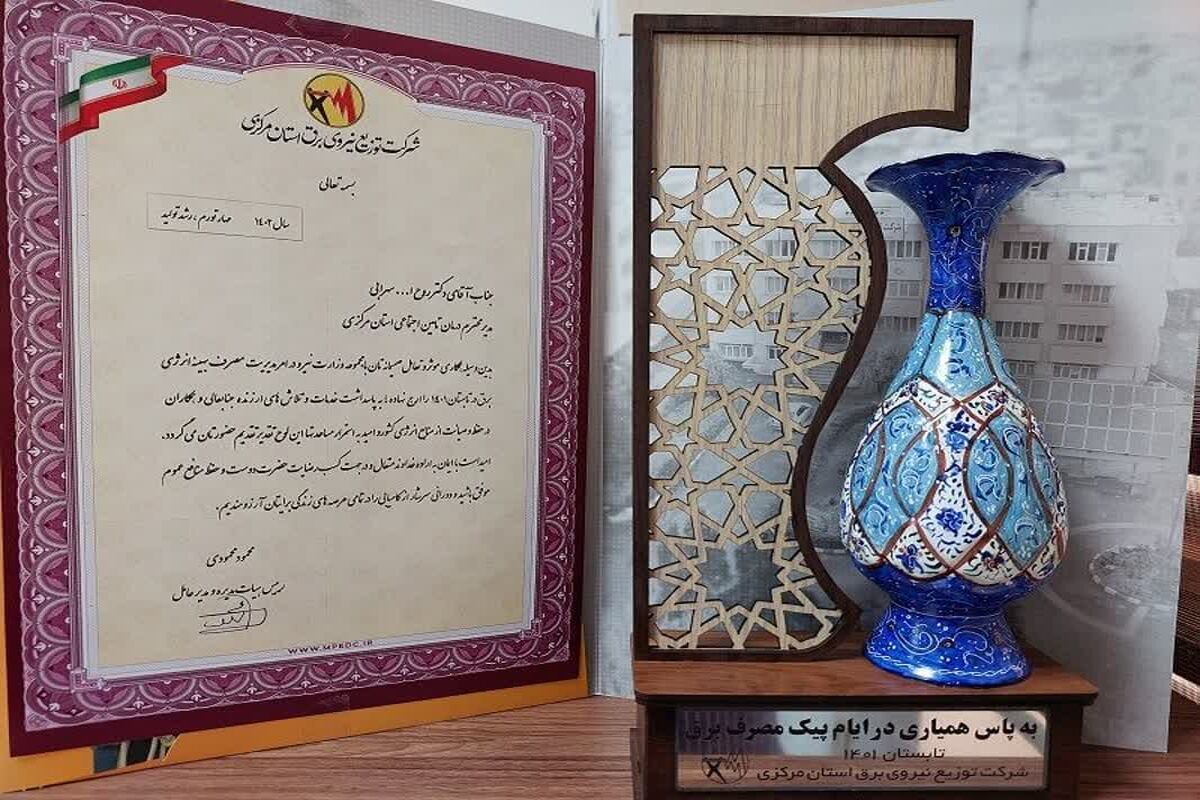 شرکت توزیع نیروی برق استان مرکزی
بسمه تعالی
سال ۱۴۰۲ مهار تورم ، رشد تولید
جناب آقای دکتر روح ا... سهرابی
مدیر محترم درمان تامین اجتماعی استان مرکزی
بدین وسیله همکاری موثر و تعامل صمیمانه تان با مجموعه وزارت نیرو در امر مدیریت مصرف بهینه انرژی
برق در تابستان ۱۴۰۱ را ارج نهاده و به پاسداشت خدمات و تلاش های ارزنده جنابعالی و همکاران
در حفظ و صیانت از منابع انرژی کشور و امید به استمرار مساعدتها این لوح تقدیر تقدیم حضورتان می گردد.
امید است با ایمان به اراده خداوند متعال و در جهت کسب رضایت حضرت دوست و حفظ منافع عموم
موفق باشید و دورانی سرشار از کامیابی را در تمامی عرصه های زندگی برایتان آرزومندیم.
محمود محمودی
رئیس هیات مدیره و مدیر عامل
WWW.MPEDC.IR
به پاس همیاری در ایام پیک مصرف برق
تابستان ۱۴۰۱
شرکت توزیع نیروی برق استان مرکزی